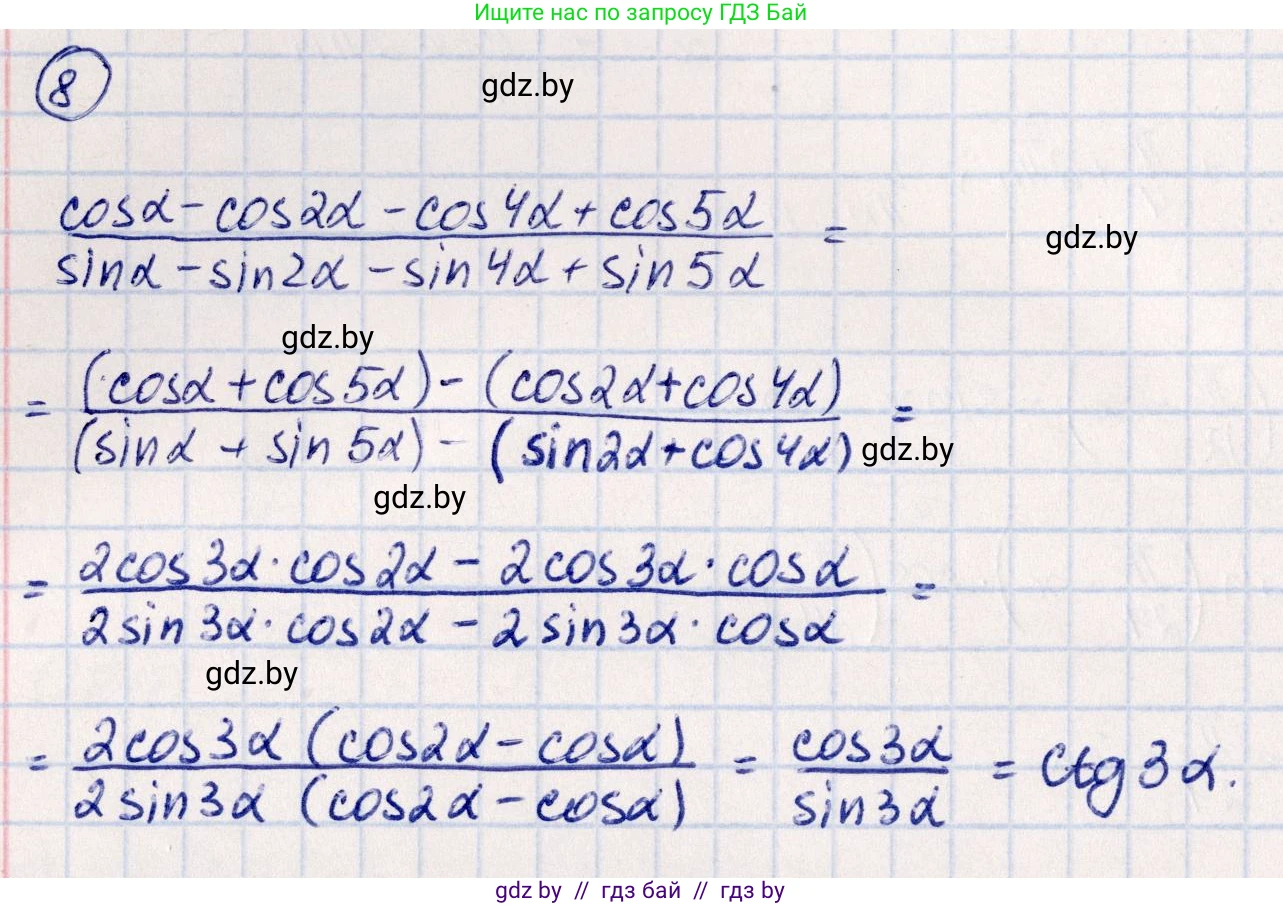 Ищите нас по запросу ГДЗ Бай
8
gdz.by
cosα - cos2α - cos4α + cos5α
sinα - sin2α - sin4α + sin5α =
gdz.by
gdz.by
= (cosα + cos5α) - (cos2α + cos4α)
(sinα + sin5α) - (sin2α + cos4α) =
gdz.by
gdz.by
= 2cos3α · cos2α - 2cos3α · cosα
2sin3α · cos2α - 2sin3α · cosα =
gdz.by
= 2cos3α (cos2α - cosα)
2sin3α (cos2α - cosα) = cos3α
sin3α = ctg3α.
gdz by // гдз бай // гдз by